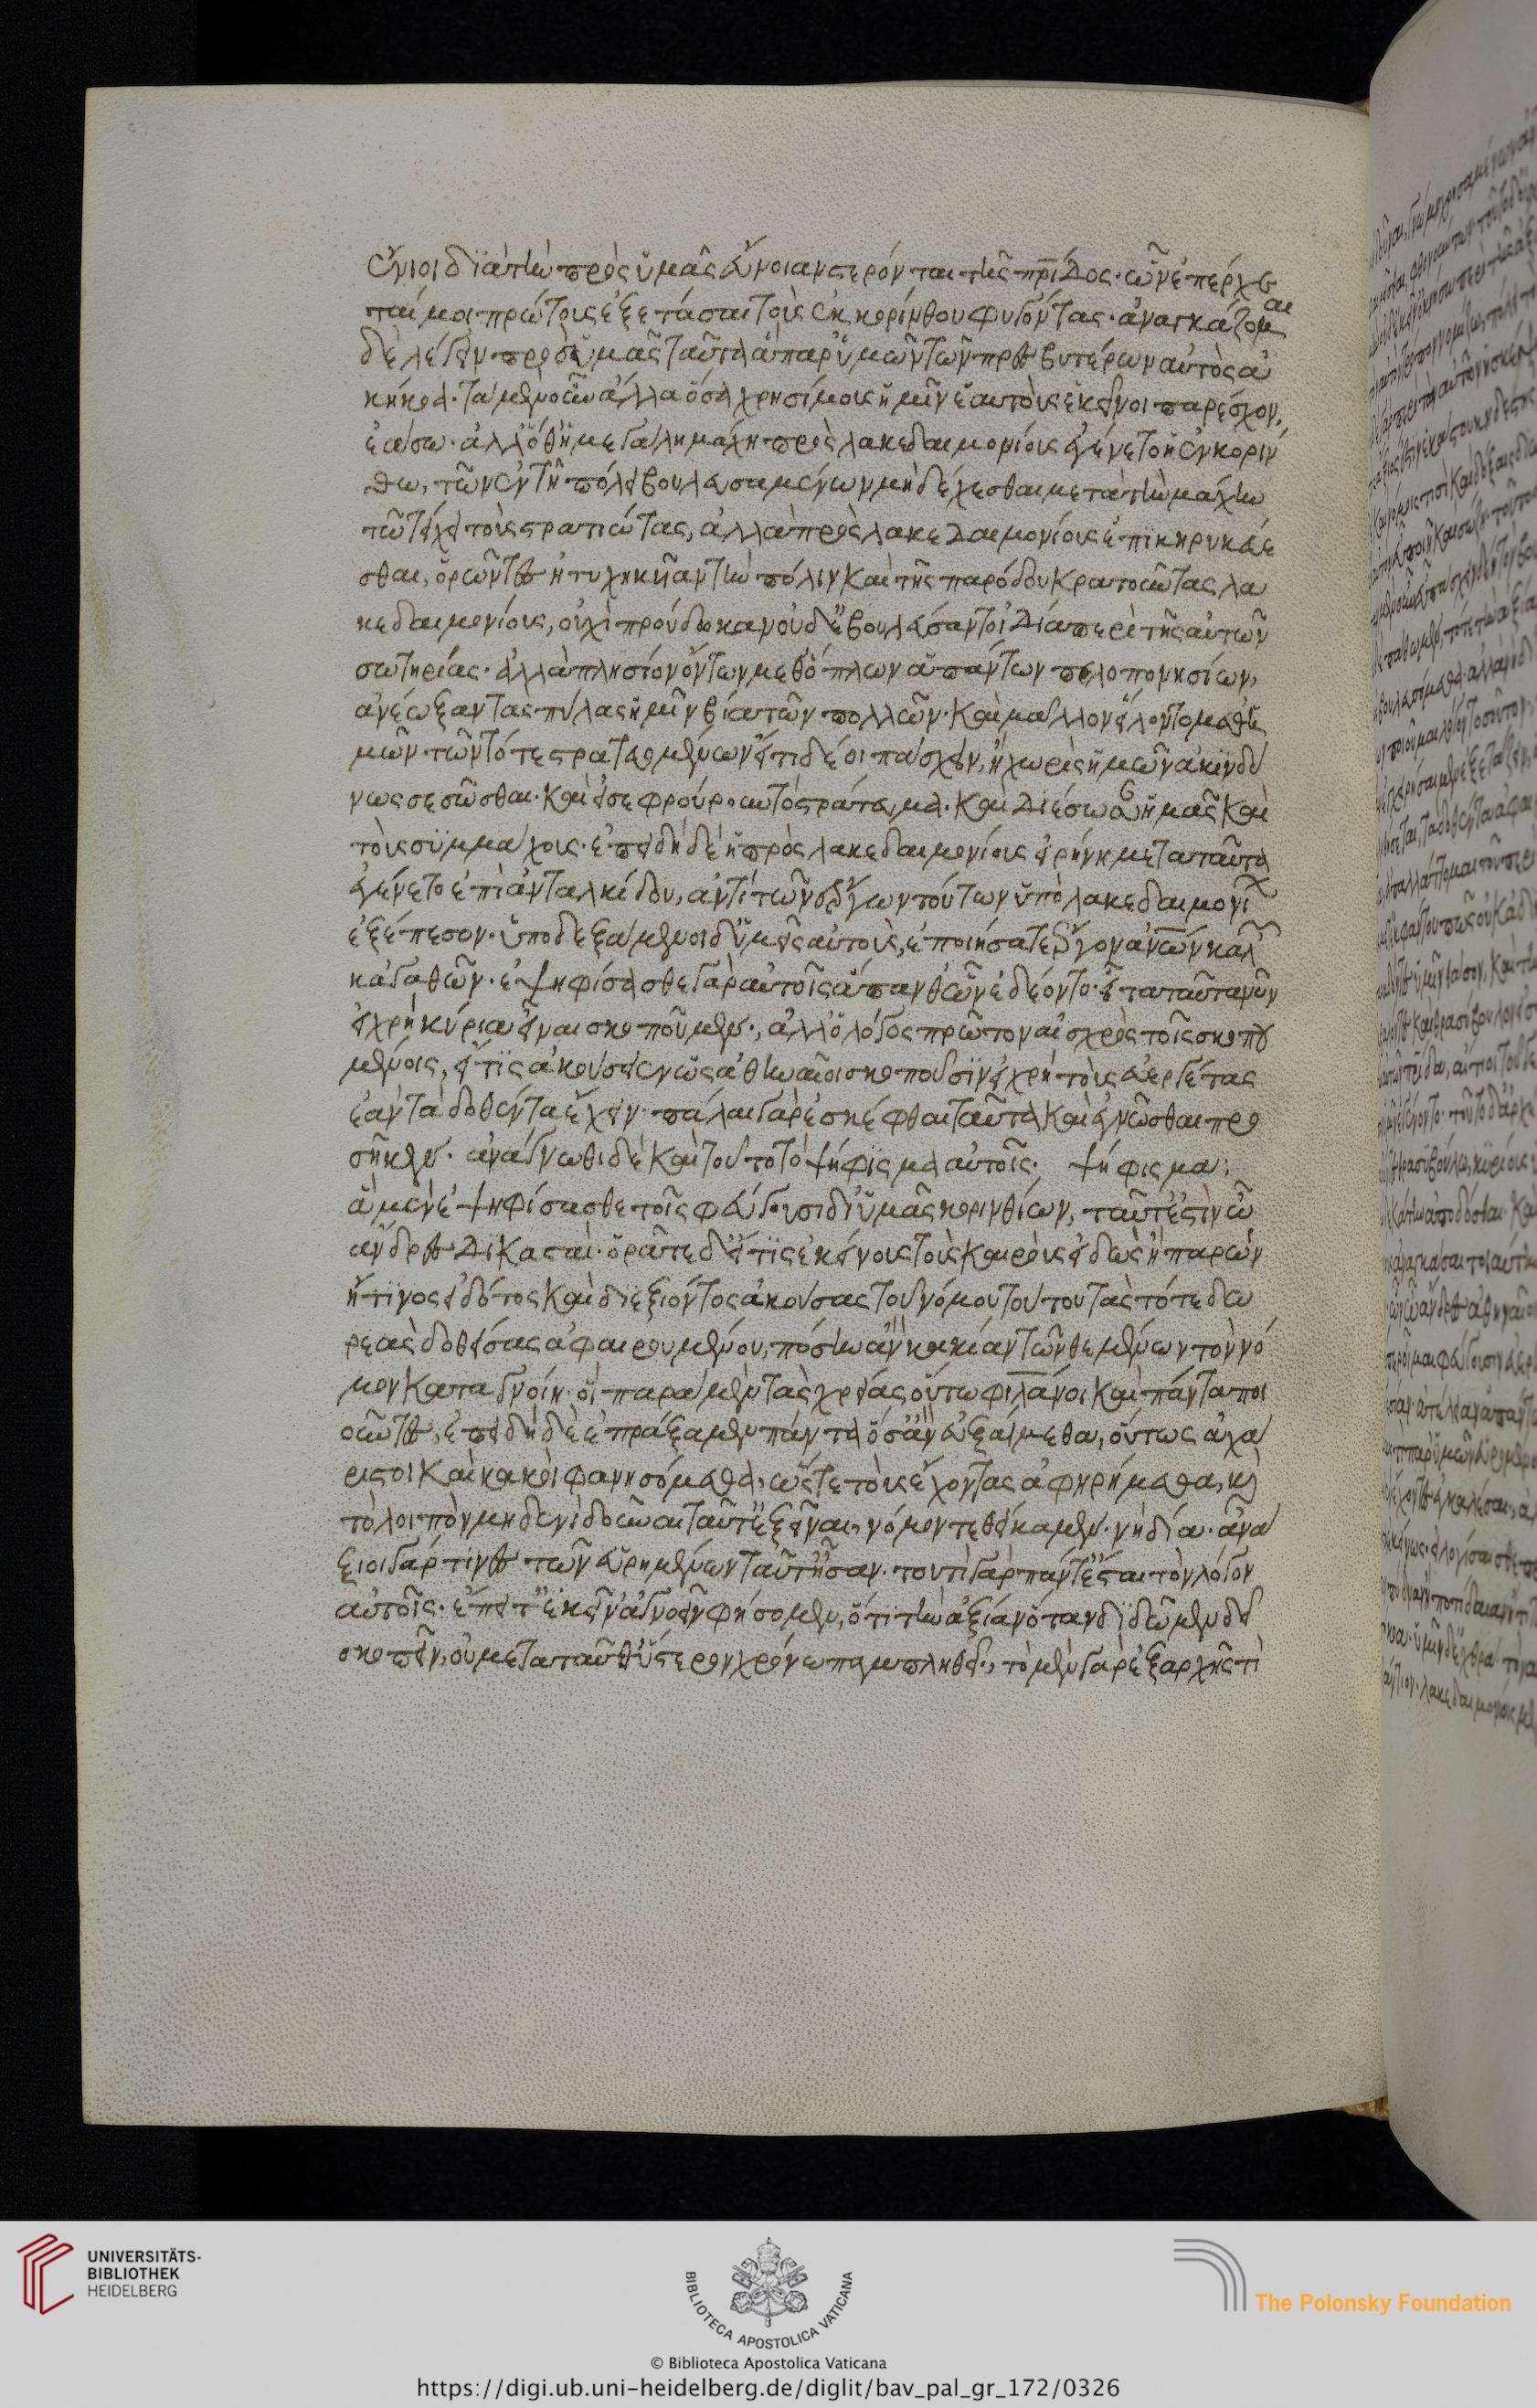 ἔνιοι διὰ τὴν πρὸς ὑμᾶς εὔνοιαν στέρονται τῆς πρίδος· ὧν ἐπέρχε
ταί μοι πρώτους ἐξετάσαι τοὺς ἐκ κορίνθου φυγόντας· ἀναγκάζομαι
δὲ λέγειν πρὸς ὑμᾶς ταῦτα ἃ παρ' ὑμῶν τῶν πρεσβυτέρων αὐτὸς ἀ
κήκοα· τὰ μὲν οὖν ἄλλα ὅσα χρησίμους ἡμῖν ἑαυτοὺς ἐκεῖνοι παρέσχον,
ἐάσω· ἀλλ' ὅθ' ἡ μεγάλη μάχη πρὸς λακεδαιμονίους ἐγένετο ἡ ἐν κοριν
θω, τῶν ἐν τῇ πόλει βουλευσαμένων μὴ δέχεσθαι μετὰ τὴν μάχην
τῶ τείχει τοὺς στρατιώτας, ἀλλὰ πρὸς λακεδαιμονίους ἐπικηρυκεύε
σθαι, ὁρῶντες ἠτυχηκυῖαν τὴν πόλιν καὶ τῆς παρόδου κρατοῦντας λα
κεδαιμονίους, οὐχὶ προύδωκαν οὐδ' ἐβουλεύσαντο ἰδία περὶ τῆς αὐτῶν
σωτηρίας· ἀλλὰ πλησίον ὄντων μεθ' ὅπλων ἁπάντων πελοπονησίων,
ἀνέωξαν τὰς πύλας ἡμῖν βία τῶν πολλῶν· καὶ μᾶλλον εἵλοντο μεθ' ὑ
μῶν τῶν τότε στρατευομένων εἴ τι δέοι πάσχειν, ἢ χωρὶς ἡμῶν ἀκινδύ
νως σεσῶσθαι· καὶ εἰσεφρούρουν τὸ στράτευμα· καὶ διέσωσαν ἡμᾶς καὶ
τοὺς συμμάχους· ἐπειδὴ δὲ ἡ πρὸς λακεδαιμονίους εἰρήνη μετὰ ταῦτα
ἐγένετο ἐπὶ ἀνταλκίδου, ἀντὶ τῶν ἔργων τούτων ὑπὸ λακεδαιμονί
ἐξέπεσον· ὑποδεξάμενοι δ' ὑμεῖς αὐτοὺς, ἐποιήσατε ἔργον ἀνῶν καλ
κἀγαθῶν· ἐψηφίσασθε γὰρ αὐτοῖς ἅπανθ' ὧν ἐδέοντο· εἶτα ταῦτα νῦν
εἰ χρὴ κύρια εἶναι σκοποῦμεν·, ἀλλ' ὁ λόγος πρῶτον αἰσχρὸς τοῖς σκοπου
μένοις, εἴ τις ἀκούσειεν ὡς ἀθηναῖοι σκοποῦσιν εἰ χρὴ τοὺς εὐεργέτας
ἐᾶν τὰ δοθέντα ἔχειν· πάλαι γὰρ ἐσκέφθαι ταῦτα καὶ ἐγνῶσθαι προ
σῆκεν· ἀνάγνωθι δὲ καὶ τοῦτο τὸ ψήφισμα αὐτοῖς· ψήφισμα:
ἃ μὲν ἐψηφίσασθε τοῖς φεύγουσι δι' ὑμᾶς κορινθίων, ταῦτ' ἐστὶν ὦ
ἄνδρες δικασταί· ὁρᾶτε δ' εἴ τις ἐκείνους τοὺς καιροὺς εἰδὼς ἢ παρὼν
ἤ τινος εἰδότος καὶ διεξιόντος ἀκούσας τοῦ νόμου τούτου τὰς τότε δω
ρεὰς δοθείσας ἀφαιρουμένου, πόσην ἂν κακίαν τῶν θεμένων τὸν νό
μον καταγνοίη· οἳ παρὰ μὲν τὰς χρείας, οὕτω φιλάνοι καὶ πάντα ποι
οῦντες, ἐπειδὴ δὲ ἐπράξαμεν πάντα ὅσ' ἂν εὐξαίμεθα, οὕτως ἀχά
ριστοι καὶ κακοὶ φανησόμεθα, ὥστε τοὺς ἔχοντας ἀφῃρήμεθα, κὶ
τὸ λοιπὸν μηδενὶ δοῦναι ταῦτ' ἐξεῖναι, νόμον τεθείκαμεν· νὴ δία· ἀνά
ξιοι γάρ τινες τῶν εὑρημένων ταῦτ' ἦσαν· τουτὶ γὰρ πάντ' ἔσται τὸν λόγον
αὐτοῖς· ἔπειτ' ἐκεῖν' ἀγνοεῖν φήσομεν, ὅτι τὴν ἀξίαν ὅταν διδῶμεν δεῖ
σκοπεῖν, οὐ μετὰ ταῦθ' ὕστερον χρόνω παμπληθεῖ·, τὸ μὲν γὰρ ἐξ ἀρχῆς τι
UNIVERSITÄTS-
BIBLIOTHEK
HEIDELBERG
BIBLIOTECA APOSTOLICA VATICANA
The Polonsky Foundation
© Biblioteca Apostolica Vaticana
https://digi.ub.uni-heidelberg.de/diglit/bav_pal_gr_172/0326